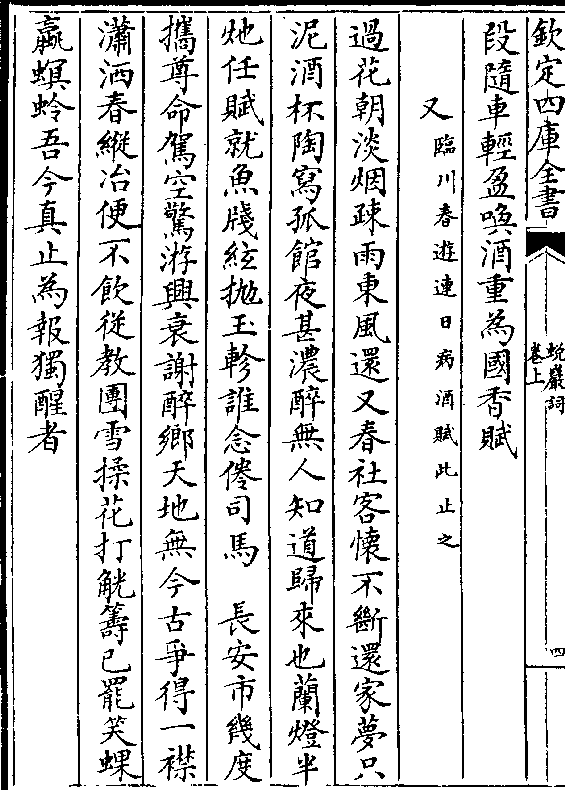 欽定四庫全書
蛻巖詞
卷上
四
段隨車輕盈喚酒重為國香賦
又臨川春遊連日病酒賦此止之
過花朝淡烟疎雨東風還又春社客懷不斷還家夢只
泥酒杯陶寫孤館夜甚濃醉無人知道歸來也蘭燈半
灺任賦就魚牋絃抛玉軫誰念倦司馬　長安市幾度
攜尊命駕空驚游興衰謝醉鄉天地無今古爭得一襟
瀟洒春縱冶便不飲從教團雪揉花打觥籌已罷笑蜾
蠃螟蛉吾今真止為報獨醒者